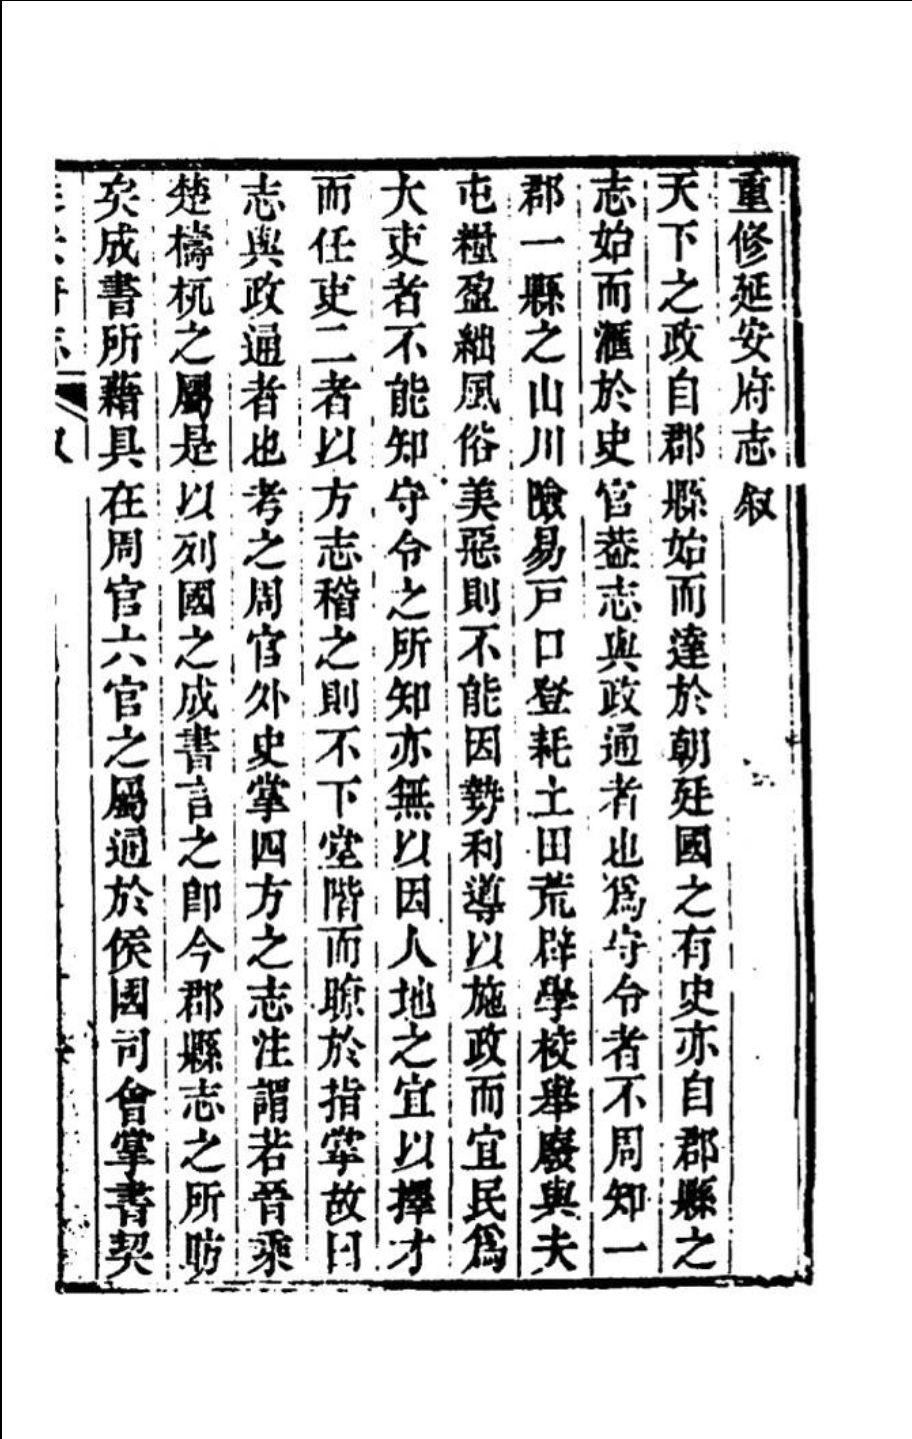 重修延安府志叙
天下之政自郡縣始而達於朝廷國之有史亦自郡縣之
志始而滙於史官葢志與政通者也爲守令者不周知一
郡一縣之山川險易戸口登耗土田荒辟學校舉廢與夫
屯糧盈絀風俗美惡則不能因勢利導以施政而宜民爲
大吏者不能知守令之所知亦無以因人地之宜以擇才
而任吏二者以方志稽之則不下堂階而瞭於指掌故曰
志與政通者也考之周官外史掌四方之志注謂若晉乘
楚檮杌之屬是以列國之成書言之卽今郡縣志之所昉
矣成書所藉具在周官六官之屬通於侯國司會掌書契
叙